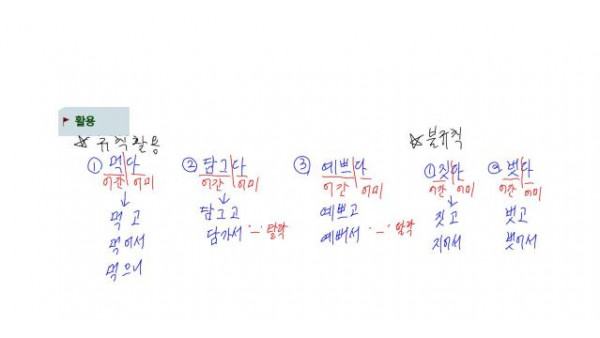 활용
☆ 규칙활용
☆ 불규칙
① 먹|다 ② 담그|다 ③ 예쁘|다 ① 짓|다 ② 벗|다
어간 어미 어간 어미 어간 어미 어간 어미 어간 어미
먹고 담그고 예쁘고 짓고 벗고
먹어서 담가서 'ㅡ' 탈락 예뻐서 'ㅡ' 탈락 지어서 벗어서
먹으니